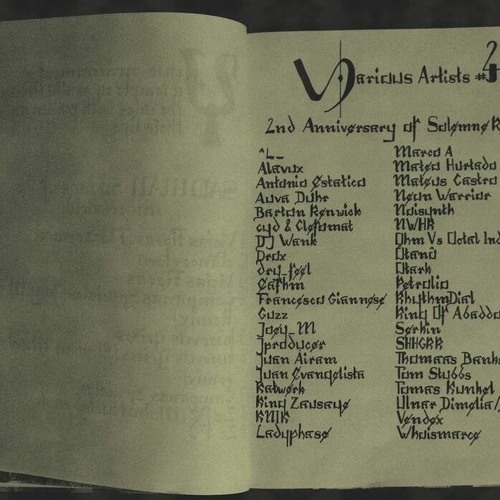 Various Artists #4
2nd Anniversary of Solemne
^L_
Alavux
Antonio Estatico
Auva Duhr
Barton Renwick
cyd & Clefomat
DJ Wank
Drux
dry_feel
Eafhm
Francesco Giannese
Guzz
Joey_M
Jproducer
Juan Airam
Juan Evangelista
Katwerk
King Zausage
KNIK
Ladyphase
Marco A
Mateo Hurtado
Mateus Castro
Neon Warrior
Noisynth
NWHR
Ohm Vs Octal Ind
Otano
Otark
Petrolio
RhythmDial
King Of Abaddo
Serkin
SHHGRR
Thomaas Banks
Tom Stubbs
Tomas Kunkel
Ulnar Dimelia/
Vendex
Whoismarce